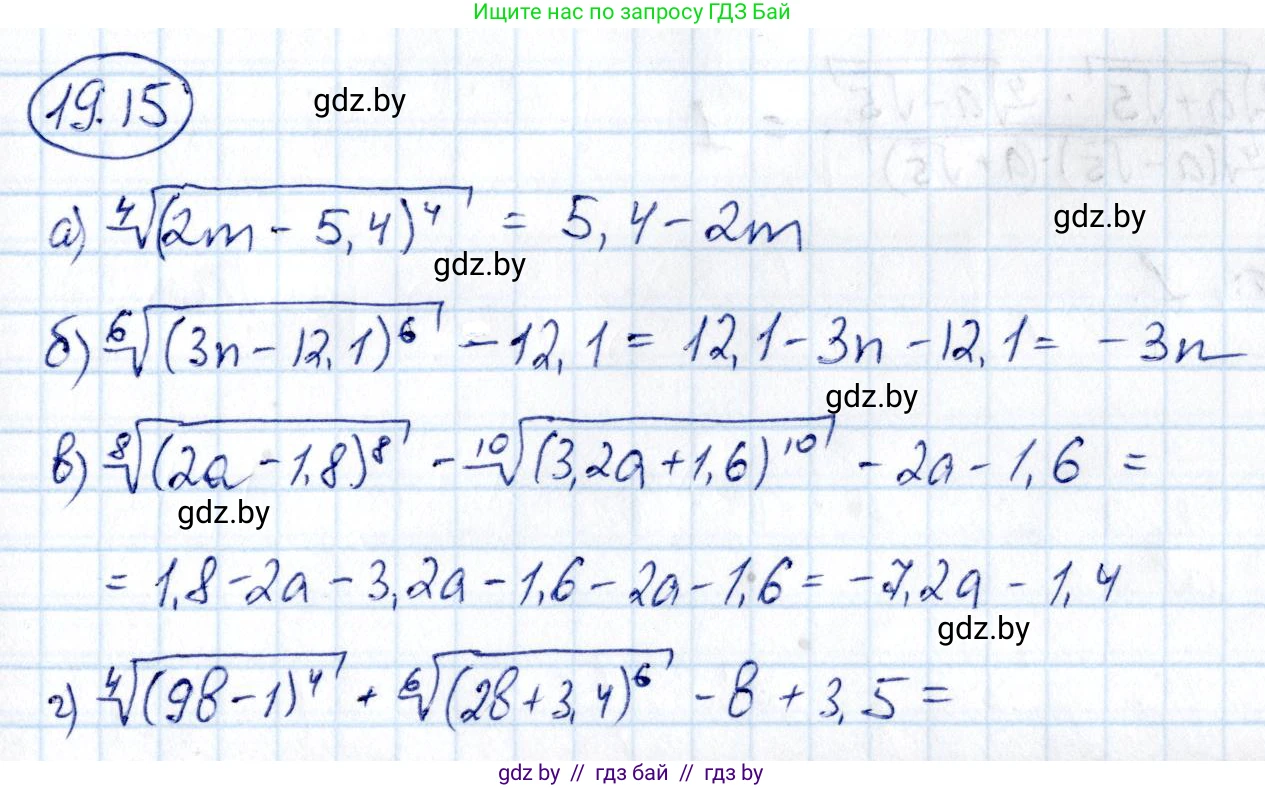 Ищите нас по запросу ГДЗ Бай
19.15
gdz.by
а) ⁴√(2m - 5,4)⁴ = 5,4 - 2m
gdz.by
gdz.by
б) ⁶√(3n - 12,1)⁶ - 12,1 = 12,1 - 3n - 12,1 = - 3n
gdz.by
в) ⁸√(2a - 1,8)⁸ - ¹⁰√(3,2a + 1,6)¹⁰ - 2a - 1,6 =
gdz.by
= 1,8 - 2a - 3,2a - 1,6 - 2a - 1,6 = - 7,2a - 1,4
gdz.by
г) ⁴√(9b - 1)⁴ + ⁶√(2b + 3,4)⁶ - b + 3,5 =
gdz by // гдз бай // гдз by